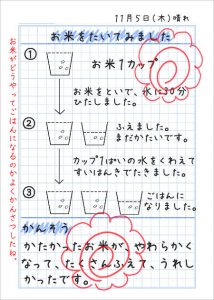 11月5日(木)晴れ
お米をたいてみました
① お米1カップ
お米をといで、水に30分
ひたしました。
② ふえました。
まだかたいです。
カップ1ぱいの水をくわえて
すいはんきでたきました。
③ ごはんに
なりました。
かんそう
かたかったお米が、やわらかく
なって、たくさんふえて、うれし
かったです。
お米がどうやってごはんになるのかよくかんさつしたね。